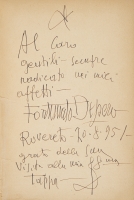 Al caro
gentili - sempre
radicato nei miei
affetti -
Fortunato Depero
Rovereto - 20 - 8 - 95
grato della sua
visita alla mia